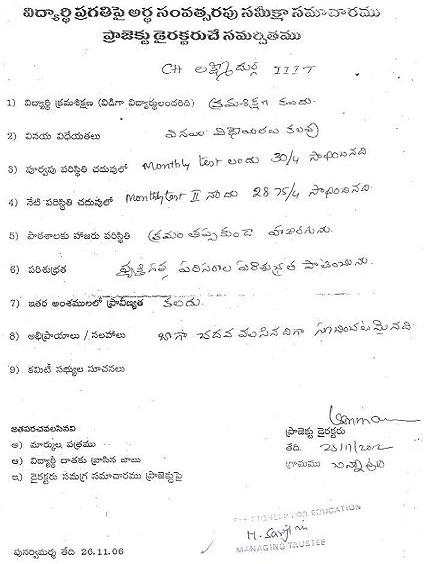 విద్యార్థి ప్రగతిపై అర్థ సంవత్సరపు సమీక్షా సమాచారము
ప్రాజెక్టు డైరక్టరుచే సమర్పితము
CH లక్ష్మీదుర్గ IIIT
1) విద్యార్థి క్రమశిక్షణ (విడిగా విద్యార్థులందరిది) క్రమశిక్షణ కలదు.
2) వినయ విధేయతలు వినయ విధేయతలు కలవు
3) పూర్వపు పరిస్థితి చదువులో Monthly test లందు 30/4 సాధించినది
4) నేటి పరిస్థితి చదువులో Monthly test II నందు 28.75/4 సాధించినది.
5) పాఠశాలకు హాజరు పరిస్థితి క్రమం తప్పకుండా హాజరగును.
6) పరిశుభ్రత వ్యక్తిగత పరిసరాల పరిశుభ్రత పాటించును.
7) ఇతర అంశములలో ప్రావీణ్యత కలదు.
8) అభిప్రాయాలు / సలహాలు బాగా చదవ వలసినదిగా సూచించటమైనది
9) కమిటీ సభ్యుల సూచనలు
జతపరచవలసినవి
అ) మార్కుల పత్రము
ఆ) విద్యార్థి దాతకు వ్రాసిన జాబు
ఇ) డైరక్టరు సమగ్ర సమాచారము ప్రాజెక్టుపై
ప్రాజెక్టు డైరక్టరు
తేది. 25/11/2012
గ్రామము
HELP FOR EDUCATION
MANAGING TRUSTEE
పునర్విమర్శ తేది 26.11.06